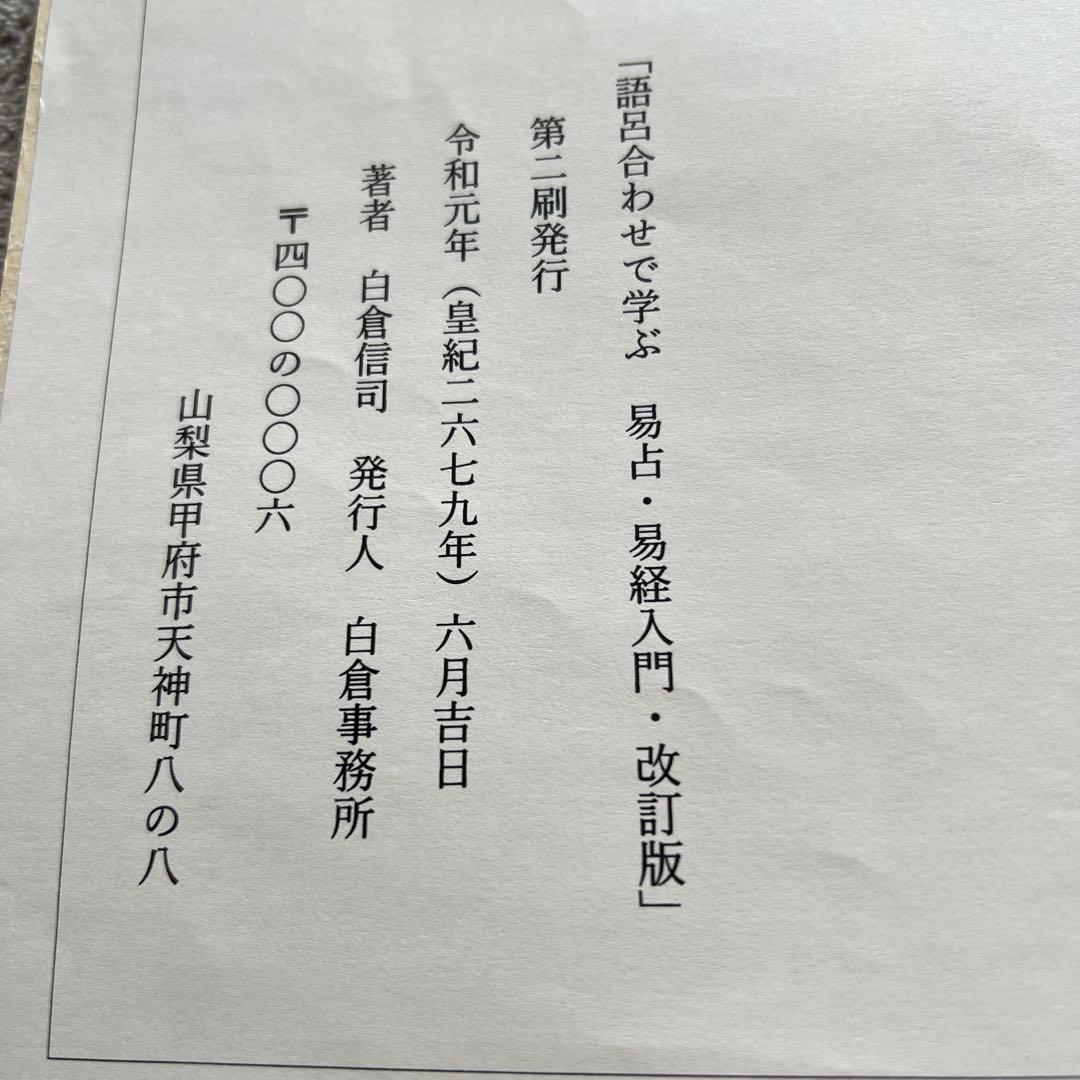 「語呂合わせで学ぶ 易占・易経入門・改訂版」
第二刷発行
令和元年（皇紀二六七九年）六月吉日
著者 白倉信司 発行人 白倉事務所
〒四〇〇の〇〇〇六
山梨県甲府市天神町八の八